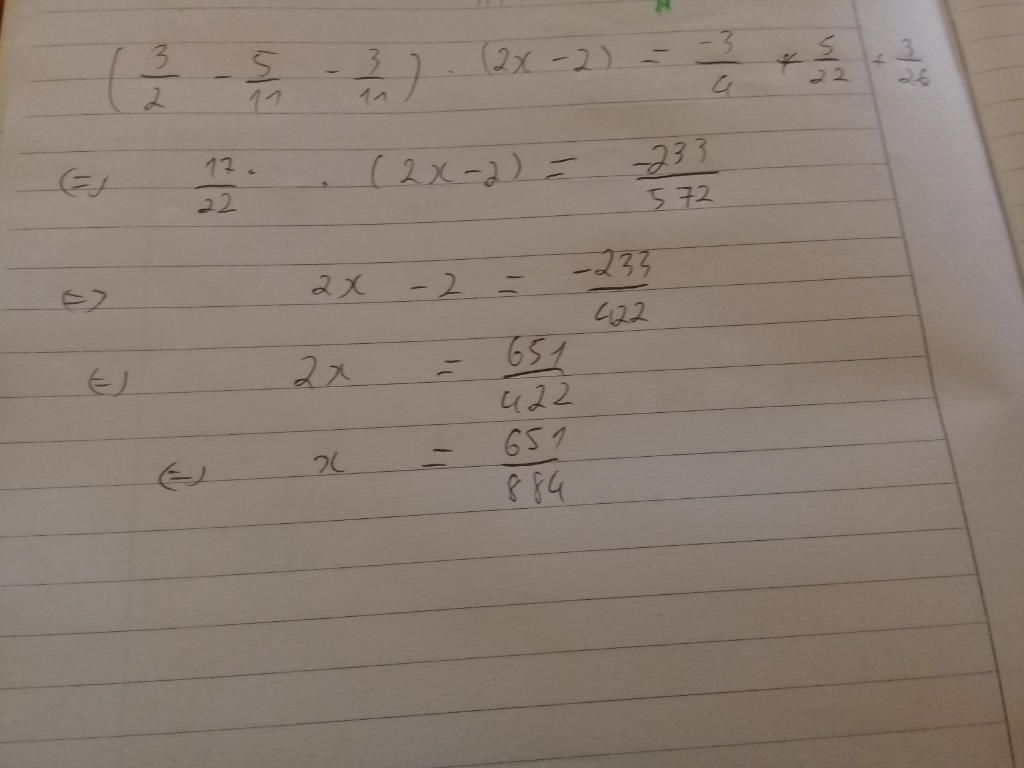 (3/2 - 5/11 - 3/11) . (2x - 2) = -3/4 + 5/22 + 3/26
(=) 17/22 . (2x - 2) = -233/572
(=) 2x - 2 = -233/422
(=) 2x = 651/422
(=) x = 651/884